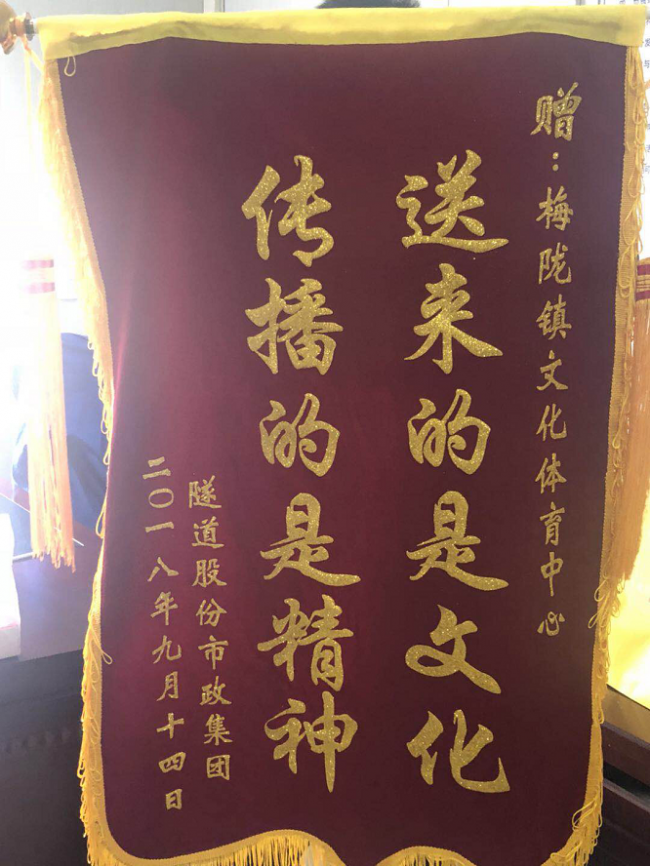 赠:梅陇镇文化体育中心
送来的是文化
传播的是精神
隧道股份市政集团
二〇一八年九月十四日